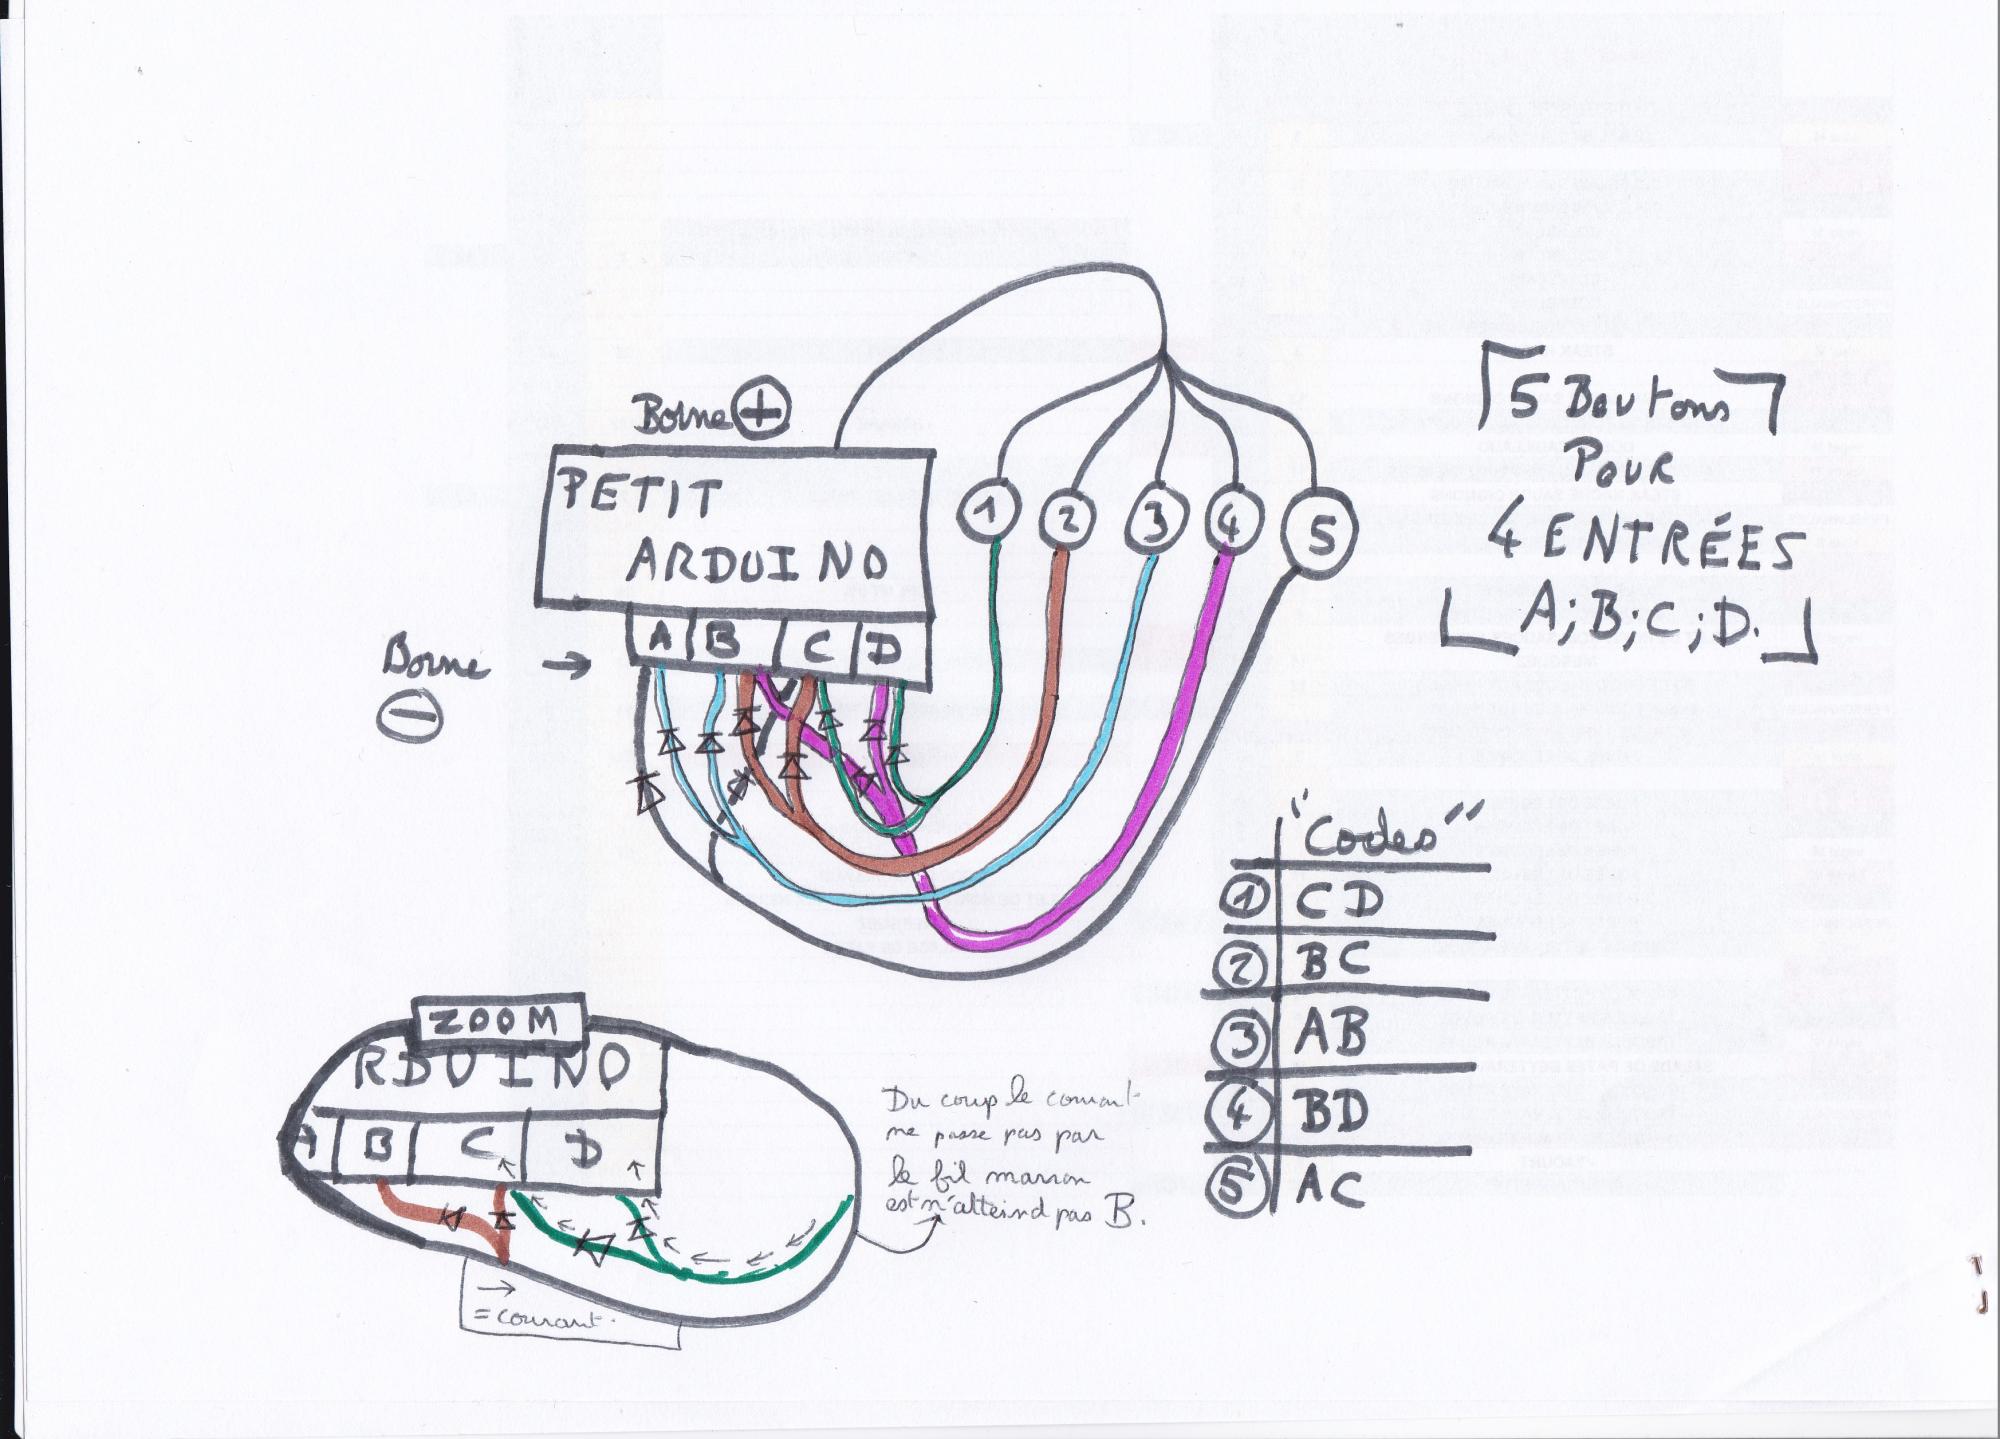 Borne +
PETIT
ARDUINO
A B C D
Borne →
−
1 2 3 4 5
5 Boutons
POUR
4 ENTRÉES
A;B;C;D.
"Codes"
1 CD
2 BC
3 AB
4 BD
5 AC
ZOOM
RDUINO
B C D
→
= courant.
Du coup le courant
ne passe pas par
le fil marron
est n'atteind pas B.